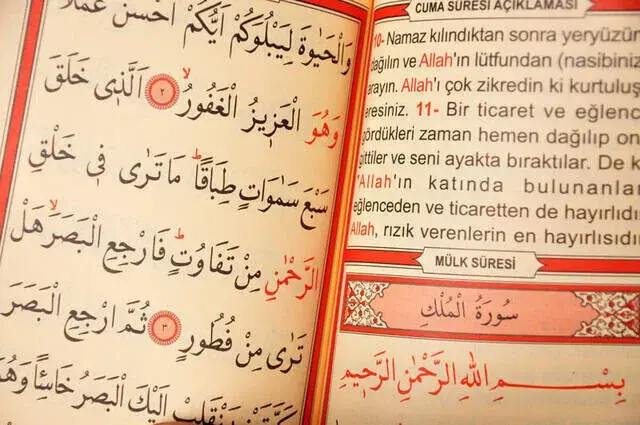 CUMA SURESİ AÇIKLAMASI
10- Namaz kılındıktan sonra yeryüzün
dağılın ve Allah'ın lütfundan (nasibiniz
arayın. Allah'ı çok zikredin ki kurtuluş
eresiniz. 11- Bir ticaret ve eğlenc
gördükleri zaman hemen dağılıp on
gittiler ve seni ayakta bıraktılar. De k
"Allah'ın katında bulunanla
eğlenceden ve ticaretten de hayırlıdı
Allah, rızık verenlerin en hayırlısıdır
MÜLK SURESİ
سُورَةُ الْمُلْكِ
بِسْمِ اللهِ الرَّحْمٰنِ الرَّحِيمِ
وَالْحَيٰوةَ لِيَبْلُوَكُمْ اَيُّكُمْ اَحْسَنُ عَمَلًا
وَهُوَ الْعَزِيزُ الْغَفُورُۙ ٢ اَلَّذِي خَلَقَ
سَبْعَ سَمٰوَاتٍ طِبَاقًاۜ مَا تَرٰى فِي خَلْقِ
الرَّحْمٰنِ مِنْ تَفَاوُتٍۜ فَارْجِعِ الْبَصَرَۙ هَلْ
تَرٰى مِنْ فُطُورٍ ٣ ثُمَّ ارْجِعِ الْبَصَرَ
كَرَّتَيْنِ يَنْقَلِبْ اِلَيْكَ الْبَصَرُ خَاسِئًا وَهُوَ